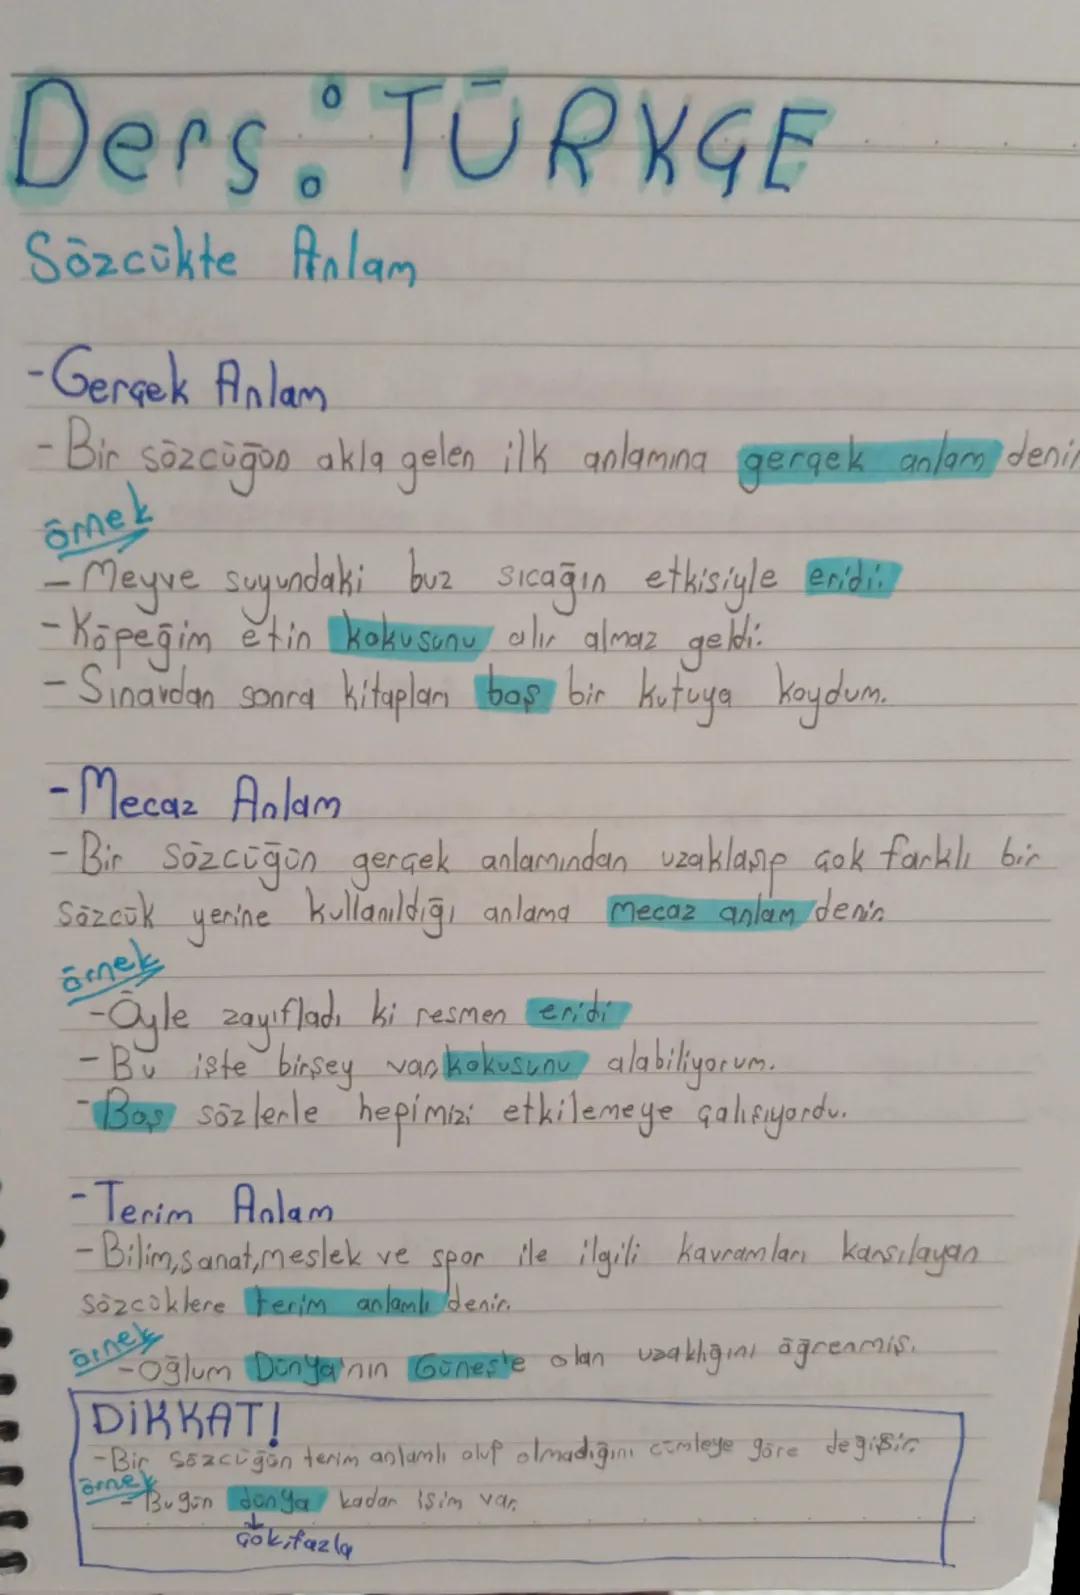 Ders: TÜRKÇE
Sözcükte Anlam
-Gerçek Anlam
-Bir sözcüğün akla gelen ilk anlamına gerçek anlam denir
örnek
-Meyve suyundaki buz sıcağın etkisiyle eridi.
-Köpeğim etin kokusunu alır almaz geldi.
-Sınavdan sonra kitapları boş bir kutuya koydum.
-Mecaz Anlam
-Bir sözcüğün gerçek anlamından uzaklaşıp çok farklı bir
sözcük yerine kullanıldığı anlama mecaz anlam denir.
örnek
-Öyle zayıfladı ki resmen eridi
-Bu işte birşey var, kokusunu alabiliyorum.
-Boş sözlerle hepimizi etkilemeye çalışıyordu.
-Terim Anlam
-Bilim, sanat, meslek ve spor ile ilgili kavramları karşılayan
sözcüklere terim anlamlı denir.
örnek
-Oğlum Dünya'nın Güneş'e olan uzaklığını öğrenmiş.
DİKKAT!
-Bir sözcüğün terim anlamlı olup olmadığını cümleye göre değişir.
örnek
-Bugün dünya kadar işim var.
↓
çok, fazla